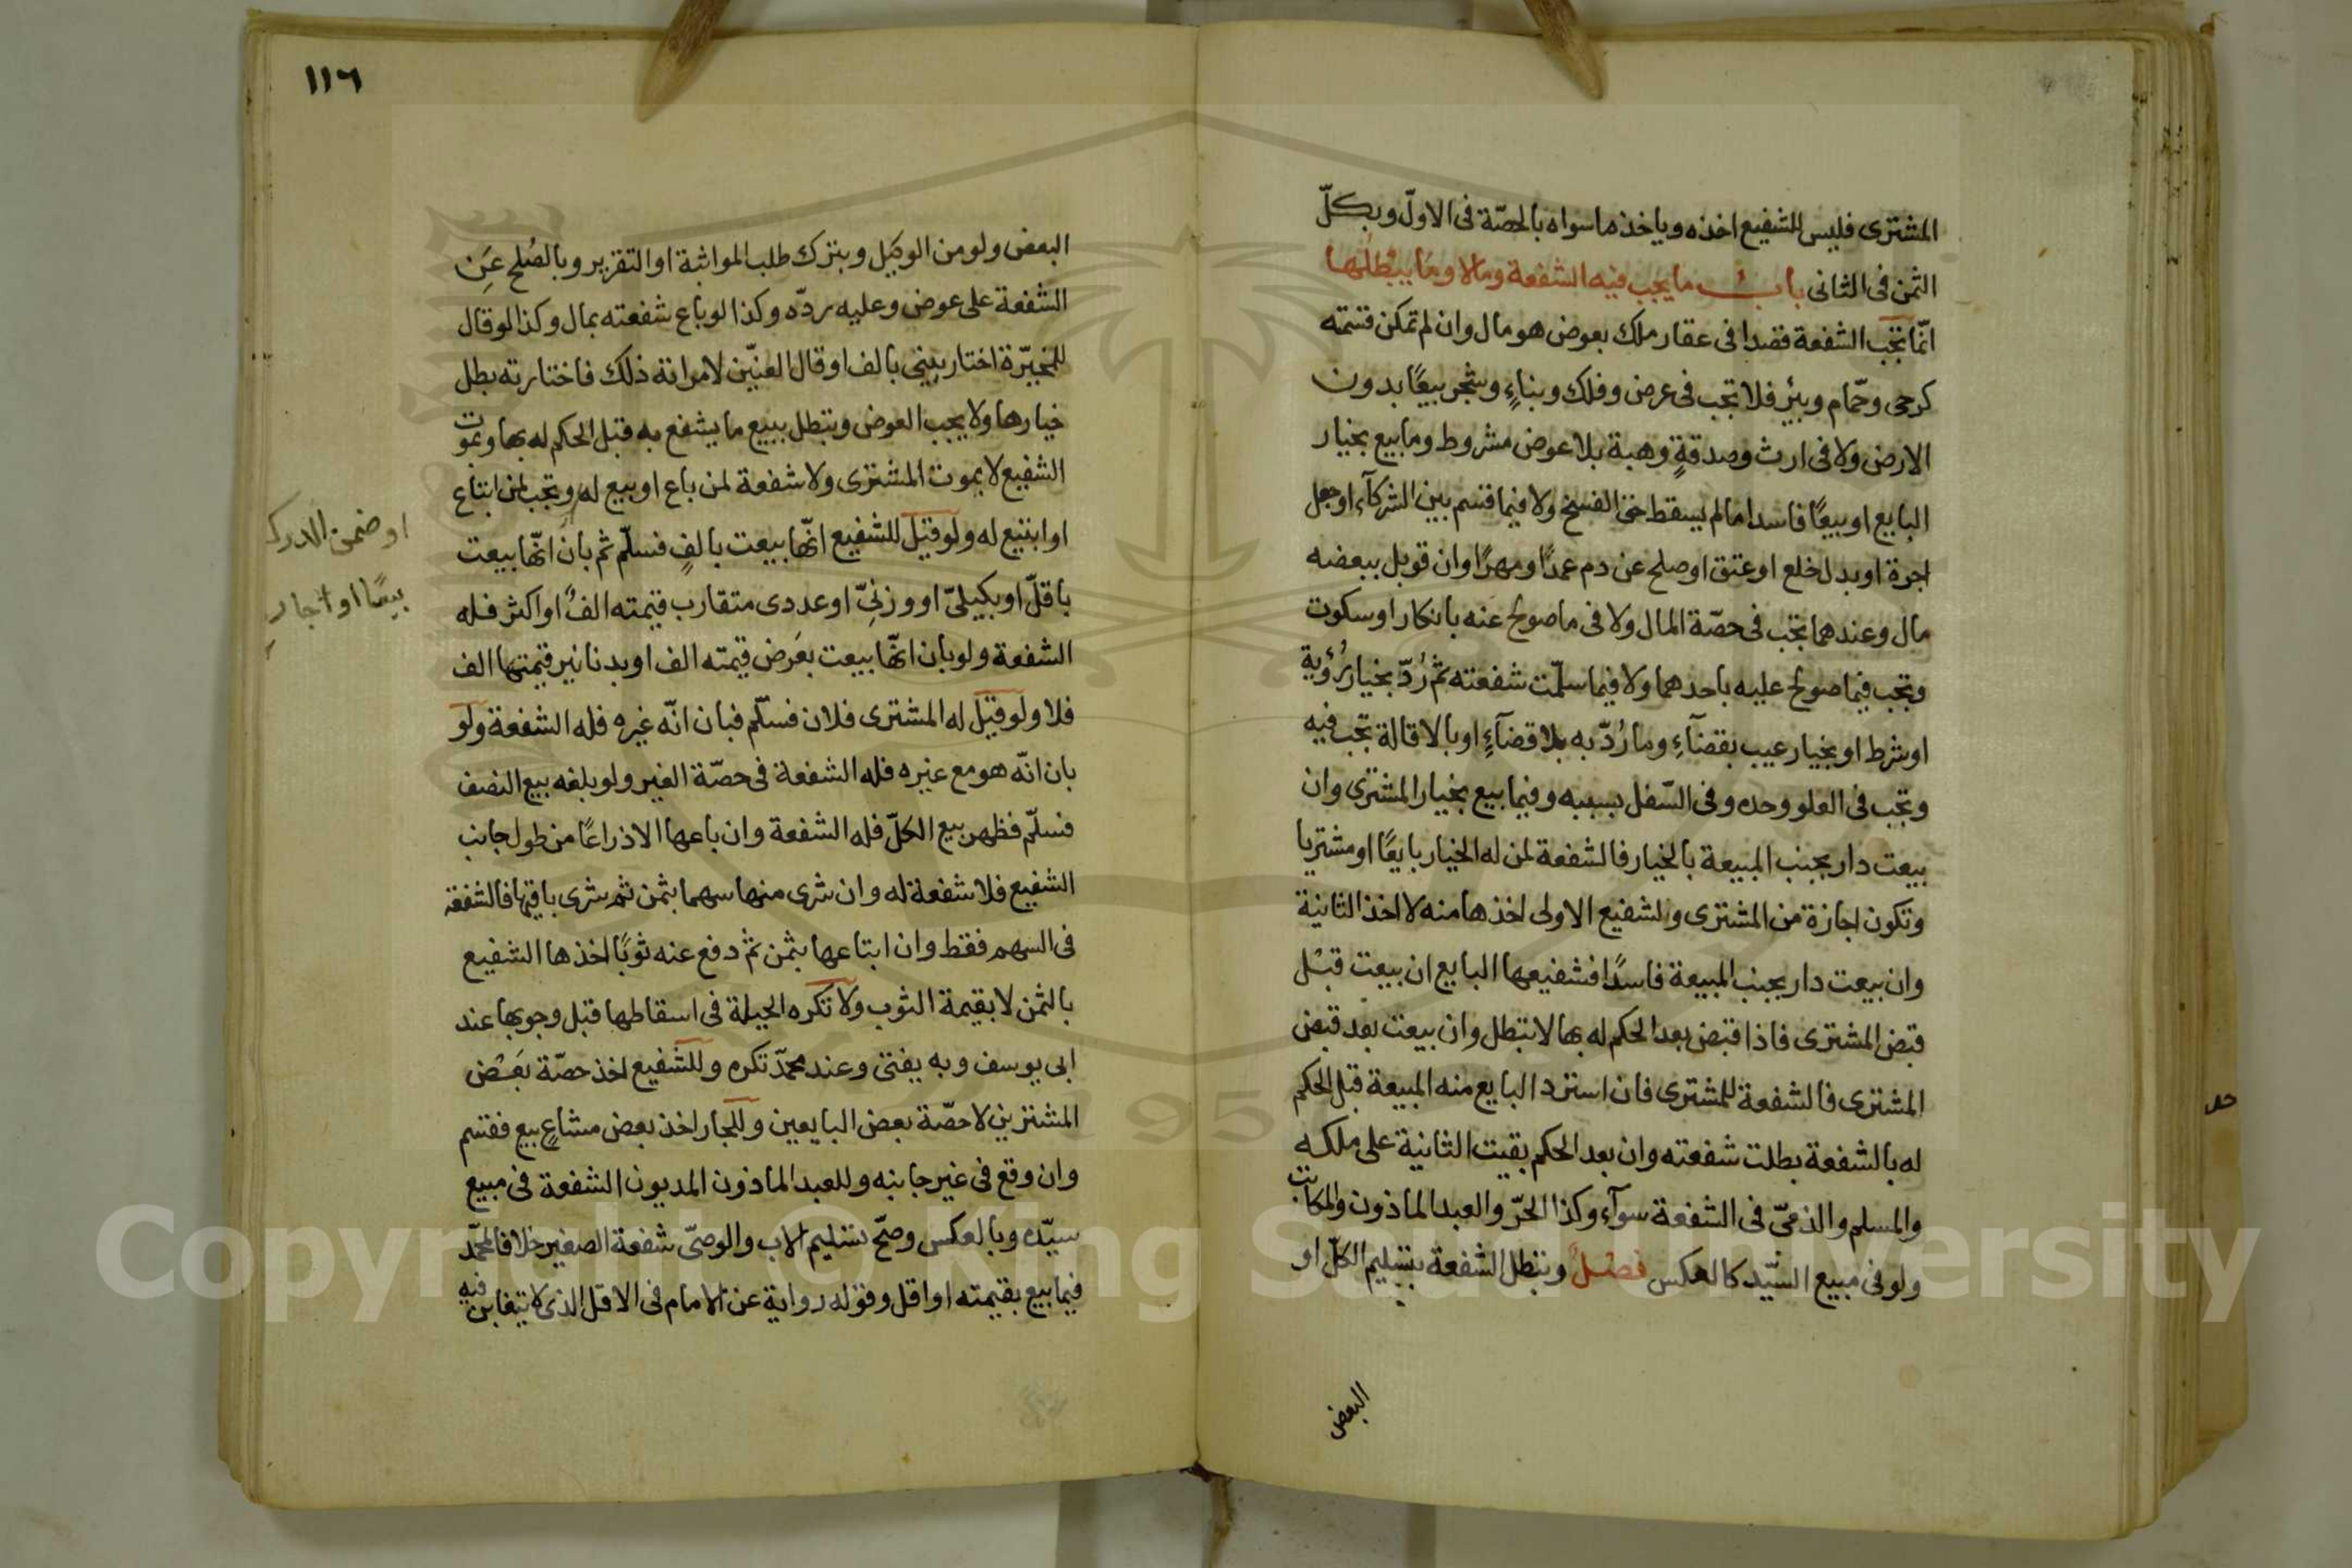 المشترى فليس للشفيع اخذه وياخذ ما سواه بالحصّة فى الاولّ وبكلّ
الثمن فى الثانى باب ما يجب فيه الشفعة وما لا وما يبطلها
انّما تجب الشفعة قصدا فى عقار ملك بعوض هو مال وان لم تمكن قسمته
كرحى وحمّام وبئر فلا تجب فى عرض وفلك وبناءٍ وشجر بيعًا بدون
الارض ولا فى ارث وصدقةٍ وهبة بلا عوض مشروط وما بيع بخيار
البايع او بيعًا فاسدا ما لم يسقط حق الفسخ ولا فيما قسم بين الشركآء او جعل
اجرة او بدل خلع او عتق او صلح عن دم عمدًا ومهرًا وان قوبل ببعضه
مال وعندهما تجب فى حصّة المال ولا فى ما صولح عنه بانكار او سكوت
وتجب فيما صولح عليه باحدهما ولا فيما سلّمت شفعته ثم رُدّ بخيار رُؤية
او شرط او بخيار عيب بقضآءٍ وما رُدّ به بلا قضآءٍ او بالاقالة تجب فيه
وتجب فى العلو وحده وفى السّفل بسببه وفيما بيع بخيار المشترى وان
بيعت دار بجنب المبيعة بالخيار فالشفعة لمن له الخيار بايعًا او مشتريا
وتكون اجازة من المشترى ولشفيع الاولى اخذها منه لا اخذ الثانية
وان بيعت دار بجنب المبيعة فاسدًا فشفيعها البايع ان بيعت قبْل
قبض المشترى فاذا قبض بعد الحكم له بها لا تبطل وان بيعت بعد قبض
المشترى فالشفعة للمشترى فان استرد البايع منه المبيعة قبل الحكم
له بالشفعة بطلت شفعته وان بعد الحكم بقيت الثانية على ملكه
والمسلم والذمىّ فى الشفعة سوآء وكذا الحرّ والعبد الماذون والمكاتب
ولو فى مبيع السّيد كالعكس فصل وتبطل الشفعة بتسليم الكلّ او
البعض
١١٦
البعض ولو من الوكيل وبترك طلب المواثبة او التقرير وبالصُلح عَنِ
الشفعة على عوض وعليه ردّه وكذا لو باع شفعته بمال وكذا لو قال
للمخيّرة اختارينى بالف او قال العنّين لامراته ذلك فاختارته بطل
خيارها ولا يجب العوض وتبطل ببيع ما يشفع به قبل الحكم له بها وبموت
الشفيع لا بموت المشترى ولا شفعة لمن باع او بيع له وتجب لمن ابتاع
او ابتيع له ولو قيل للشفيع انّها بيعت بالفٍ فسلّم ثم بان انّها بيعت
باقلّ او بكيلىّ او وزنىّ او عددى متقارب قيمته الفٌ او اكثر فله
الشفعة ولو بان انّها بيعت بعَرض قيمته الف او بدنانير قيمتها الف
فلا ولو قيل له المشترى فلان فسلّم فبان انّه غيره فله الشفعة ولو
بان انّه هو مع غيره فله الشفعة فى حصّة الغير ولو بلغه بيع النصف
فسلّم فظهر بيع الكلّ فله الشفعة وان باعها الا ذراعًا من طول جانب
الشفيع فلا شفعة له وان شرى منها سهما بثمن ثم شرى باقيها فالشفعة
فى السهم فقط وان ابتاعها بثمن ثم دفع عنه ثوبًا اخذها الشفيع
بالثمن لا بقيمة الثوب ولا تكره الحيلة فى اسقاطها قبل وجوبها عند
ابى يوسف وبه يفتى وعند محمّد تكره وللشفيع اخذ حصّة بَعْض
المشترين لا حصّة بعض البايعين وللجار اخذ بعض مشاعٍ بيع فقسم
وان وقع فى غير جانبه وللعبد الماذون المديون الشفعة فى مبيع
سيّده وبالعكس وصحّ تسليم الاب والوصىّ شفعة الصغير خلافا لمحمّد
فيما بيع بقيمته او اقل وقوله رواية عن الامام فى الاقل الذى لا يتغابن فيه
او ضمن الدرك
بيعًا او اجار